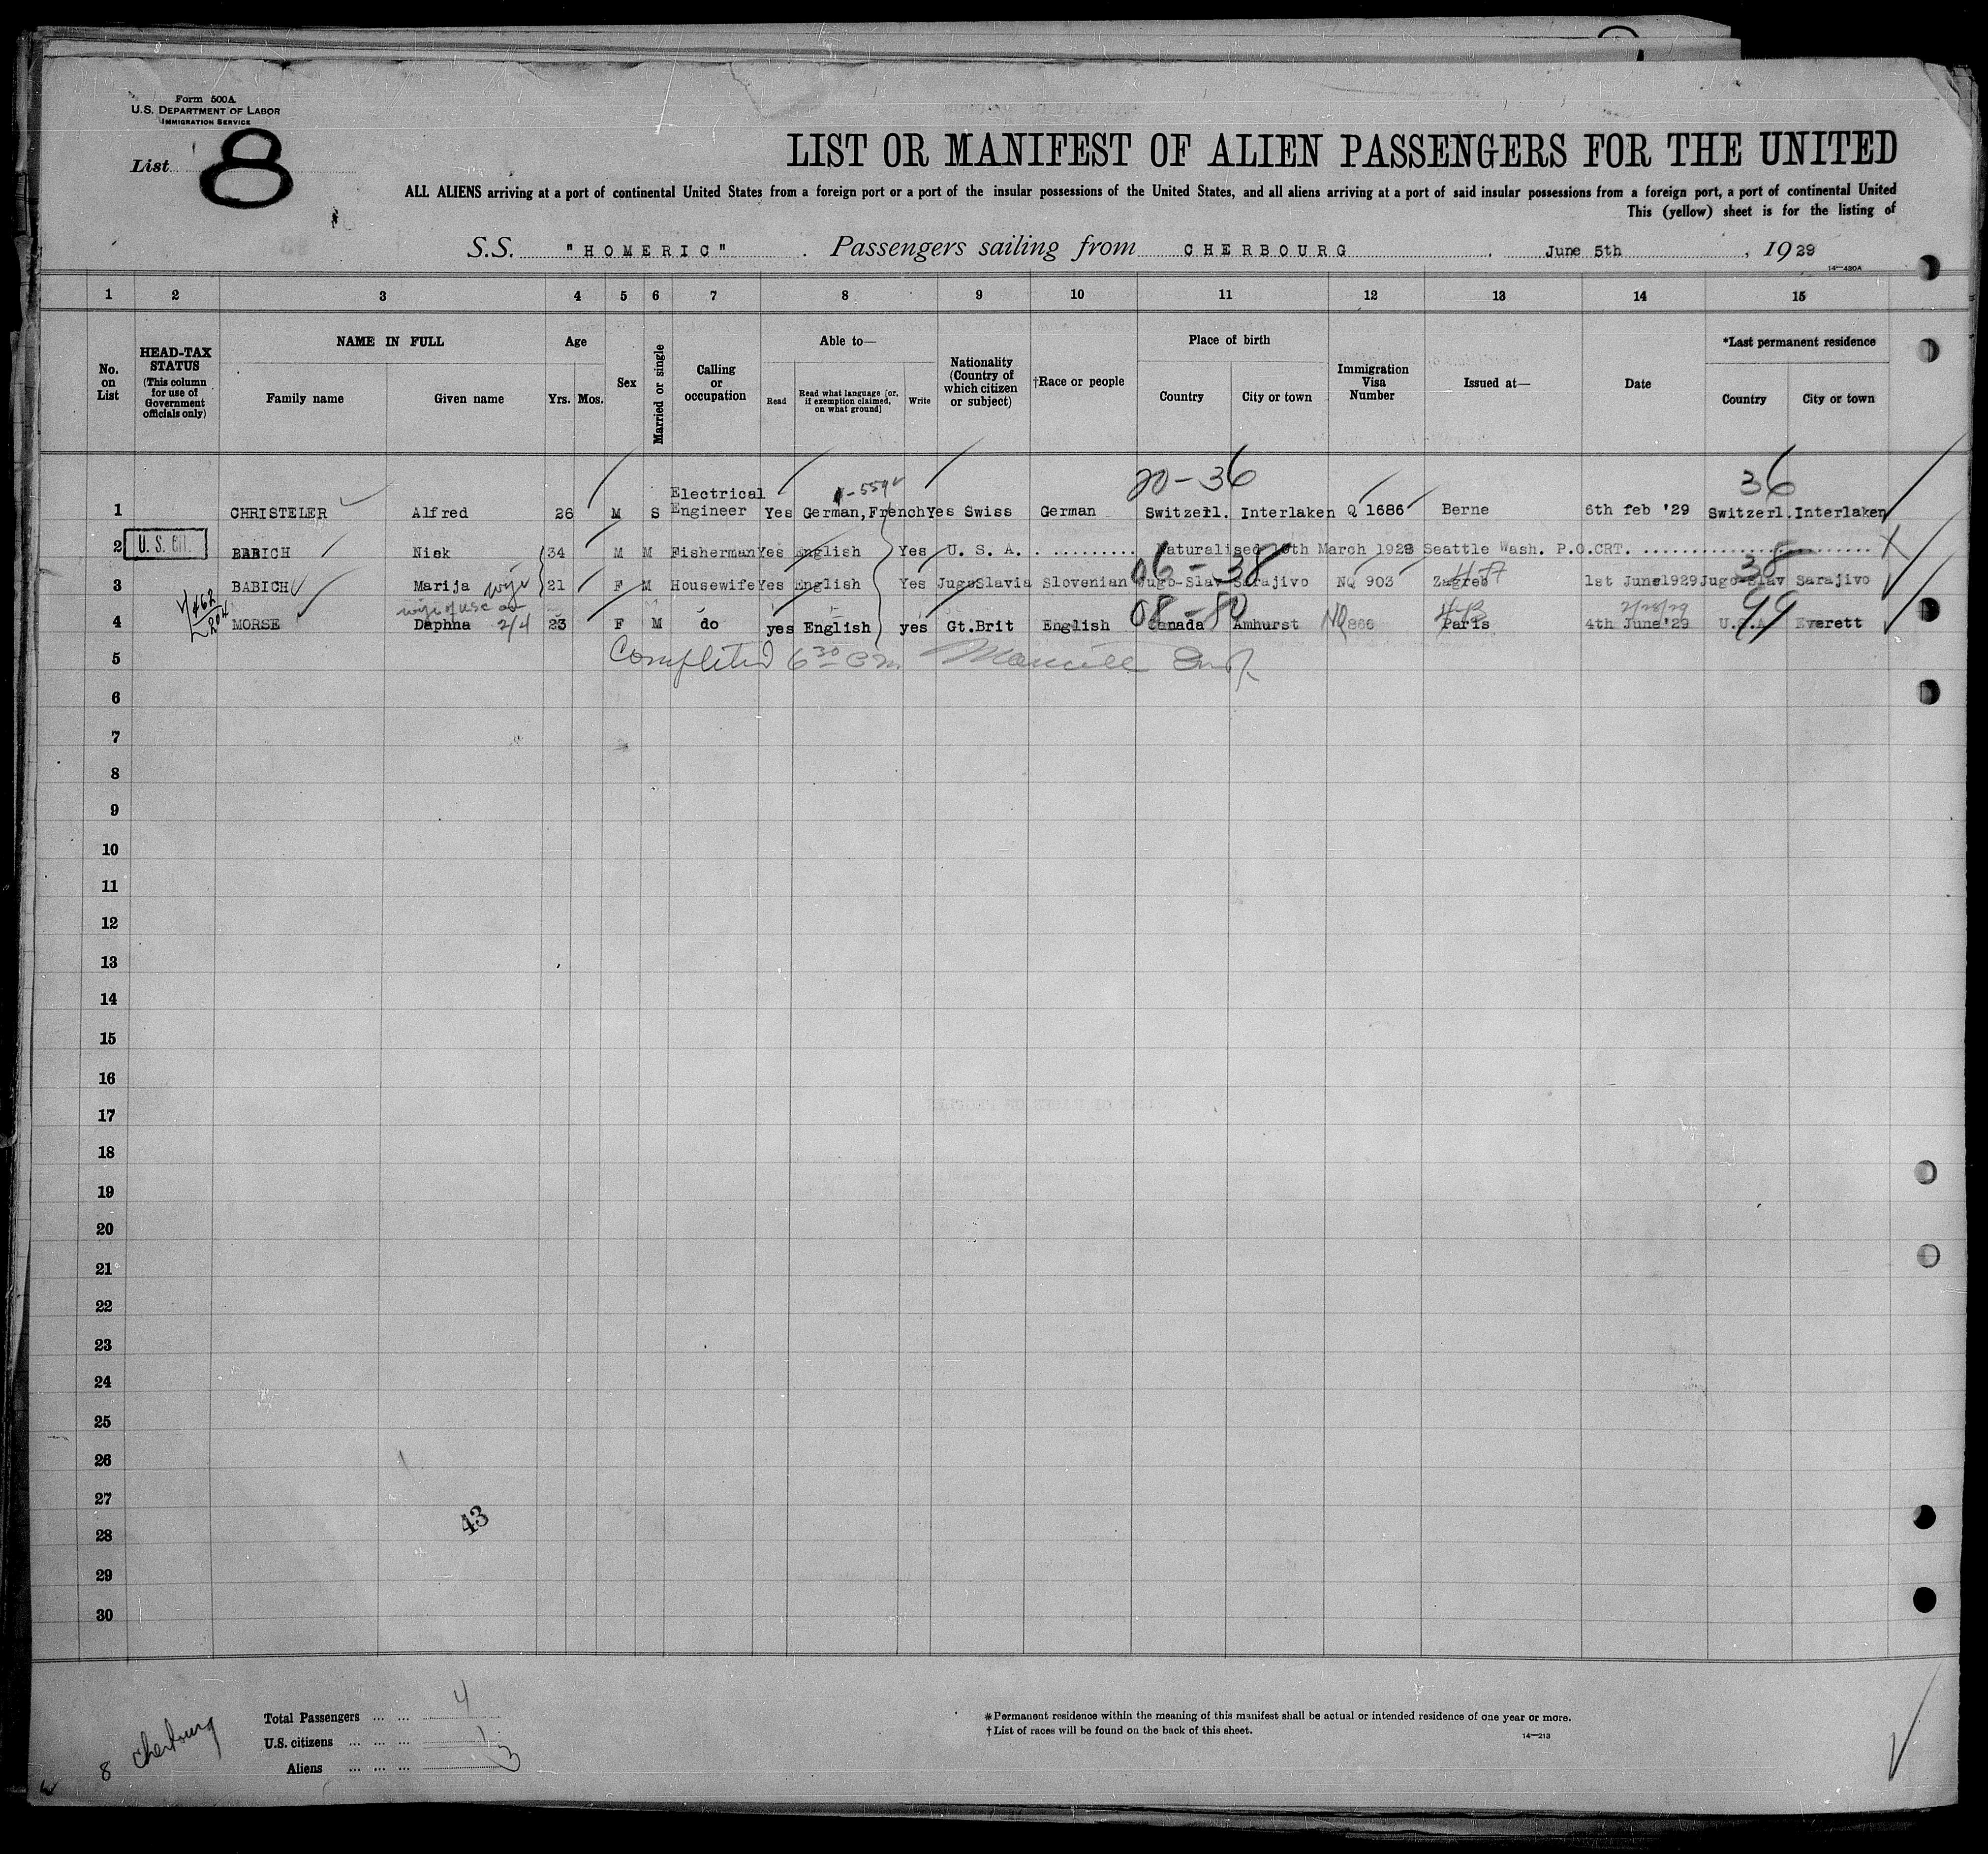 Form 500A
U.S. DEPARTMENT OF LABOR
IMMIGRATION SERVICE
List 8
LIST OR MANIFEST OF ALIEN PASSENGERS FOR THE UNITED
ALL ALIENS arriving at a port of continental United States from a foreign port or a port of the insular possessions of the United States, and all aliens arriving at a port of said insular possessions from a foreign port, a port of continental United
This (yellow) sheet is for the listing of
S.S. "HOMERIC" . Passengers sailing from CHERBOURG . June 5th , 1929
14—430A
1 2 3 4 5 6 7 8 9 10 11 12 13 14 15
No. on List
HEAD-TAX STATUS
(This column for use of Government officials only)
NAME IN FULL
Family name Given name
Age
Yrs. Mos.
Sex
Married or single
Calling or occupation
Able to—
Read Read what language (or, if exemption claimed, on what ground) Write
Nationality (Country of which citizen or subject)
†Race or people
Place of birth
Country City or town
Immigration Visa Number
Issued at—
Date
*Last permanent residence
Country City or town
20-36 36
1 CHRISTELER Alfred 26 M S Electrical Engineer Yes German, French Yes Swiss German Switzerl. Interlaken Q 1686 Berne 6th feb '29 Switzerl. Interlaken
2 U.S. Cit. BABICH Nick 34 M M Fisherman Yes English Yes U. S. A. .......... Naturalised March 1928 Seattle Wash. P.O.CRT. ..........
06-38 38
3 BABICH Marija wife 21 F M Housewife Yes English Yes JugoSlavia Slovenian Jugo-Slav Sarajivo NQ 903 Zagreb 1st June1929 Jugo-Slav Sarajivo
wife of USC 08-80 2/28/29 99
4 MORSE Daphna 2/4 23 F M do yes English yes Gt.Brit English Canada Amhurst NQ 866 Paris 4th June'29 U.S.A. Everett
5 Completed 6 30
6
7
8
9
10
11
12
13
14
15
16
17
18
19
20
21
22
23
24
25
26
27
43
28
29
30
Total Passengers ... ... 4
U.S. citizens ... ... ... 1
Aliens ... ... ... 3
8 Cherbourg
*Permanent residence within the meaning of this manifest shall be actual or intended residence of one year or more.
†List of races will be found on the back of this sheet.
14—213